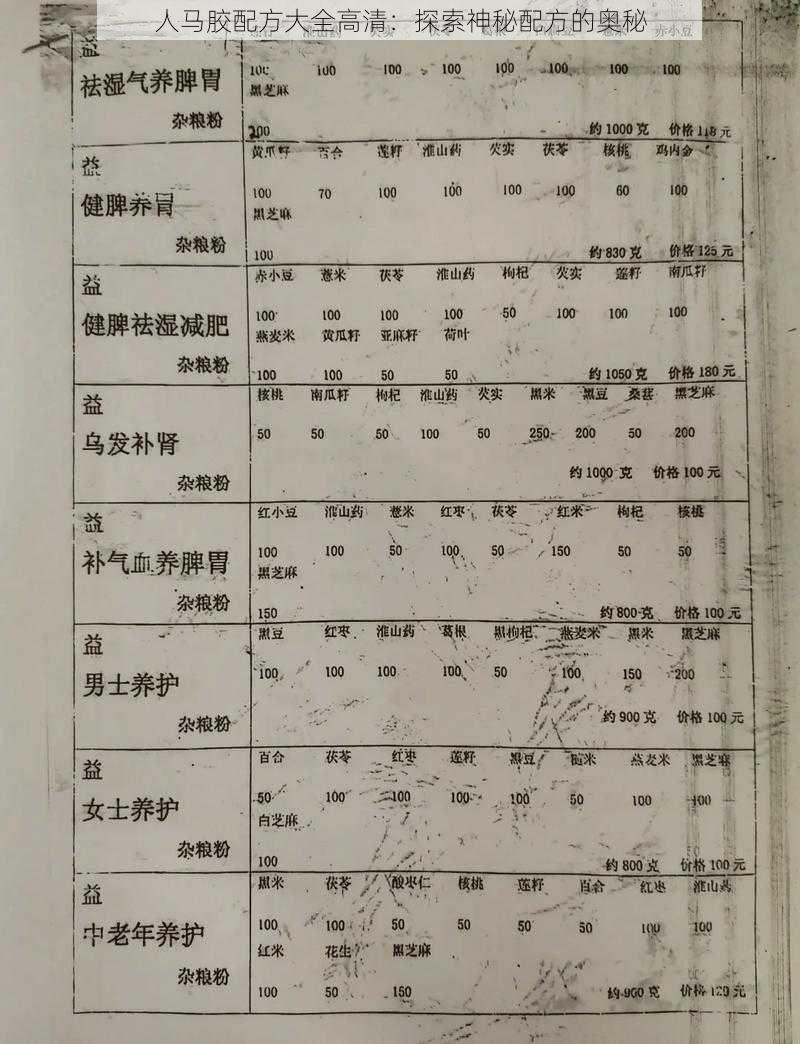 人马胶配方大全高清：探索神秘配方的奥秘
赤小豆
祛湿气养脾胃 100 100 100 100 100 100 100
黑芝麻
杂粮粉
200 约1000克 价格118元
益 黄瓜籽 百合 莲籽 淮山药 芡实 茯苓 核桃 鸡内金
健脾养胃 100 70 100 100 100 100 60 100
黑芝麻
杂粮粉
100 约830克 价格125元
益 赤小豆 薏米 茯苓 淮山药 枸杞 芡实 莲籽 南瓜籽
健脾祛湿减肥 100 100 100 100 50 100 100 100
燕麦米 黄瓜籽 亚麻籽 荷叶
杂粮粉
100 100 50 50 约1050克 价格180元
益 核桃 南瓜籽 枸杞 淮山药 芡实 黑米 黑豆 桑葚 黑芝麻
乌发补肾 50 50 50 100 50 250 200 50 200
杂粮粉 约1000克 价格100元
益 红小豆 淮山药 薏米 红枣 茯苓 红米 枸杞 核桃
补气血养脾胃 100 100 50 100 50 150 50 50
黑芝麻
杂粮粉
150 约800克 价格100元
益 黑豆 红枣 淮山药 葛根 黑枸杞 燕麦米 黑米 黑芝麻
男士养护 100 100 100 100 50 100 150 200
杂粮粉 约900克 价格100元
益 百合 茯苓 红枣 莲籽 黑豆 米 燕麦米 黑芝麻
女士养护 50 100 100 100 100 50 100 100
白芝麻
杂粮粉
100 约800克 价格100元
益 黑米 茯苓 酸枣仁 核桃 莲籽 百合 红枣 淮山药
中老年养护 100 100 50 50 50 50 100 100
红米 花生 黑芝麻
杂粮粉
100 50 150 约900克 价格120元